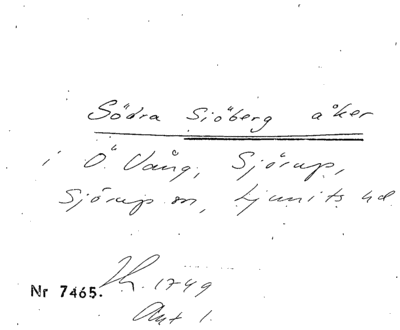 Södra Sjöberg åker
i Ö Vång, Sjörup,
Sjörup sn, Ljunits hd
Nr 7465.
Th. 1749
Akt 1.